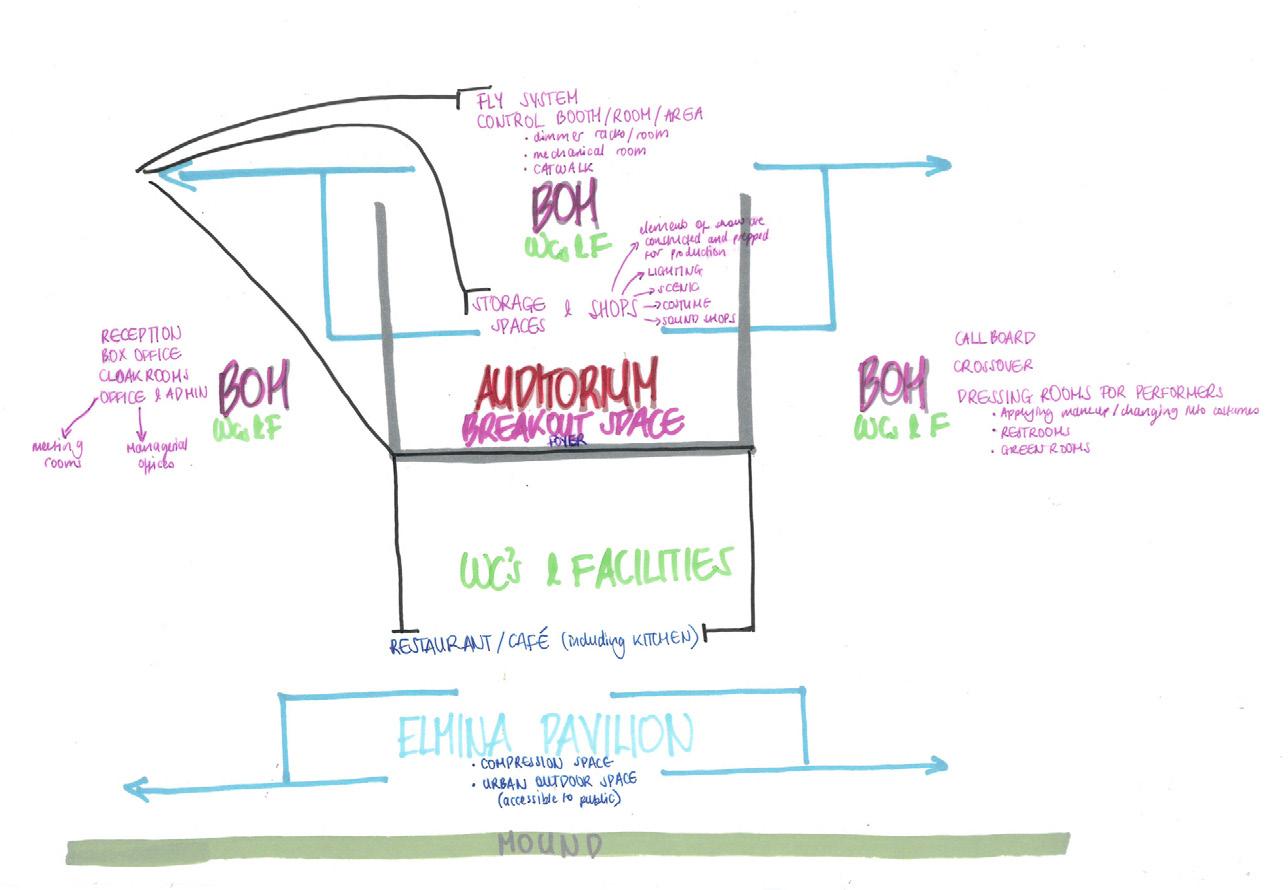 FLY SYSTEM
CONTROL BOOTH/ROOM/AREA
• dimmer racks/room
• mechanical room
• CATWALK
BOH
WCs & F
elements of show are
constructed and prepped
for production
LIGHTING
SCENIC
COSTUME
SOUND SHOPS
STORAGE & SHOPS
SPACES
RECEPTION
BOX OFFICE
CLOAKROOMS
OFFICE & ADMIN
meeting
rooms
Managerial
offices
BOH
WCs & F
AUDITORIUM
BREAKOUT SPACE
FOYER
BOH
WCs & F
CALLBOARD
CROSSOVER
DRESSING ROOMS FOR PERFORMERS
• Applying makeup/changing into costumes
• RESTROOMS
• GREEN ROOMS
WC's & FACILITIES
RESTAURANT/CAFÉ (including KITCHEN)
ELMINA PAVILION
• COMPRESSION SPACE
• URBAN OUTDOOR SPACE
(accessible to public)
MOUND